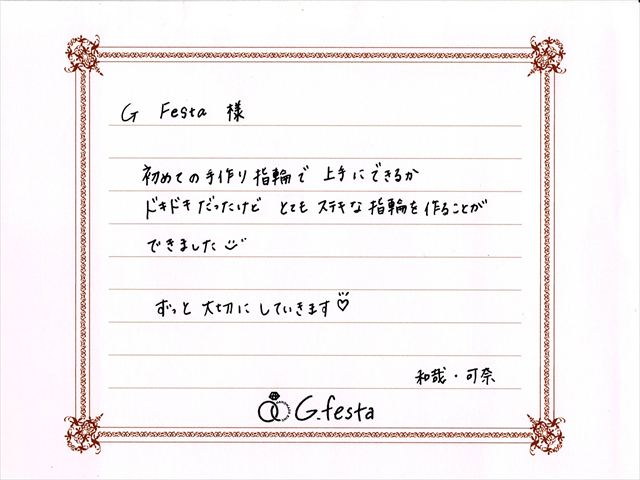 G Festa 様
初めての手作り指輪で 上手にできるか
ドキドキだったけど とても ステキな指輪を作ることが
できました
ずっと 大切に していきます♡
和哉・可奈
G.festa